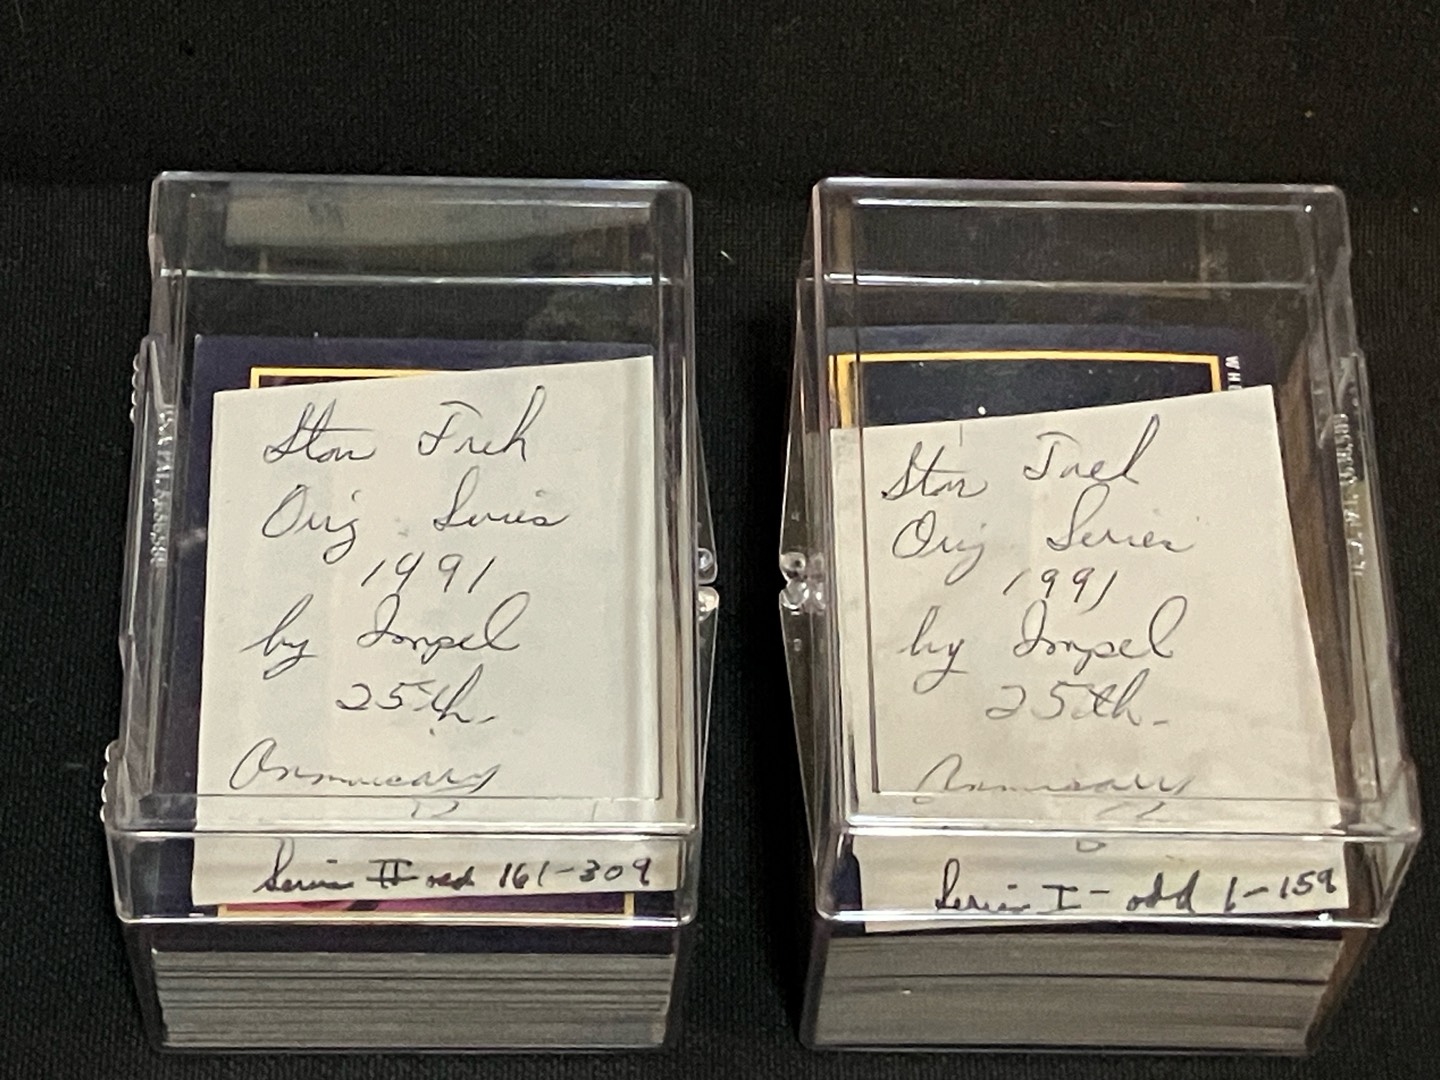 Star Trek
Orig Series
1991
by Impel
25th
Anniversary
Series II odd 161-309
Star Trek
Orig Series
1991
by Impel
25th
Anniversary
Series I - odd 1-159